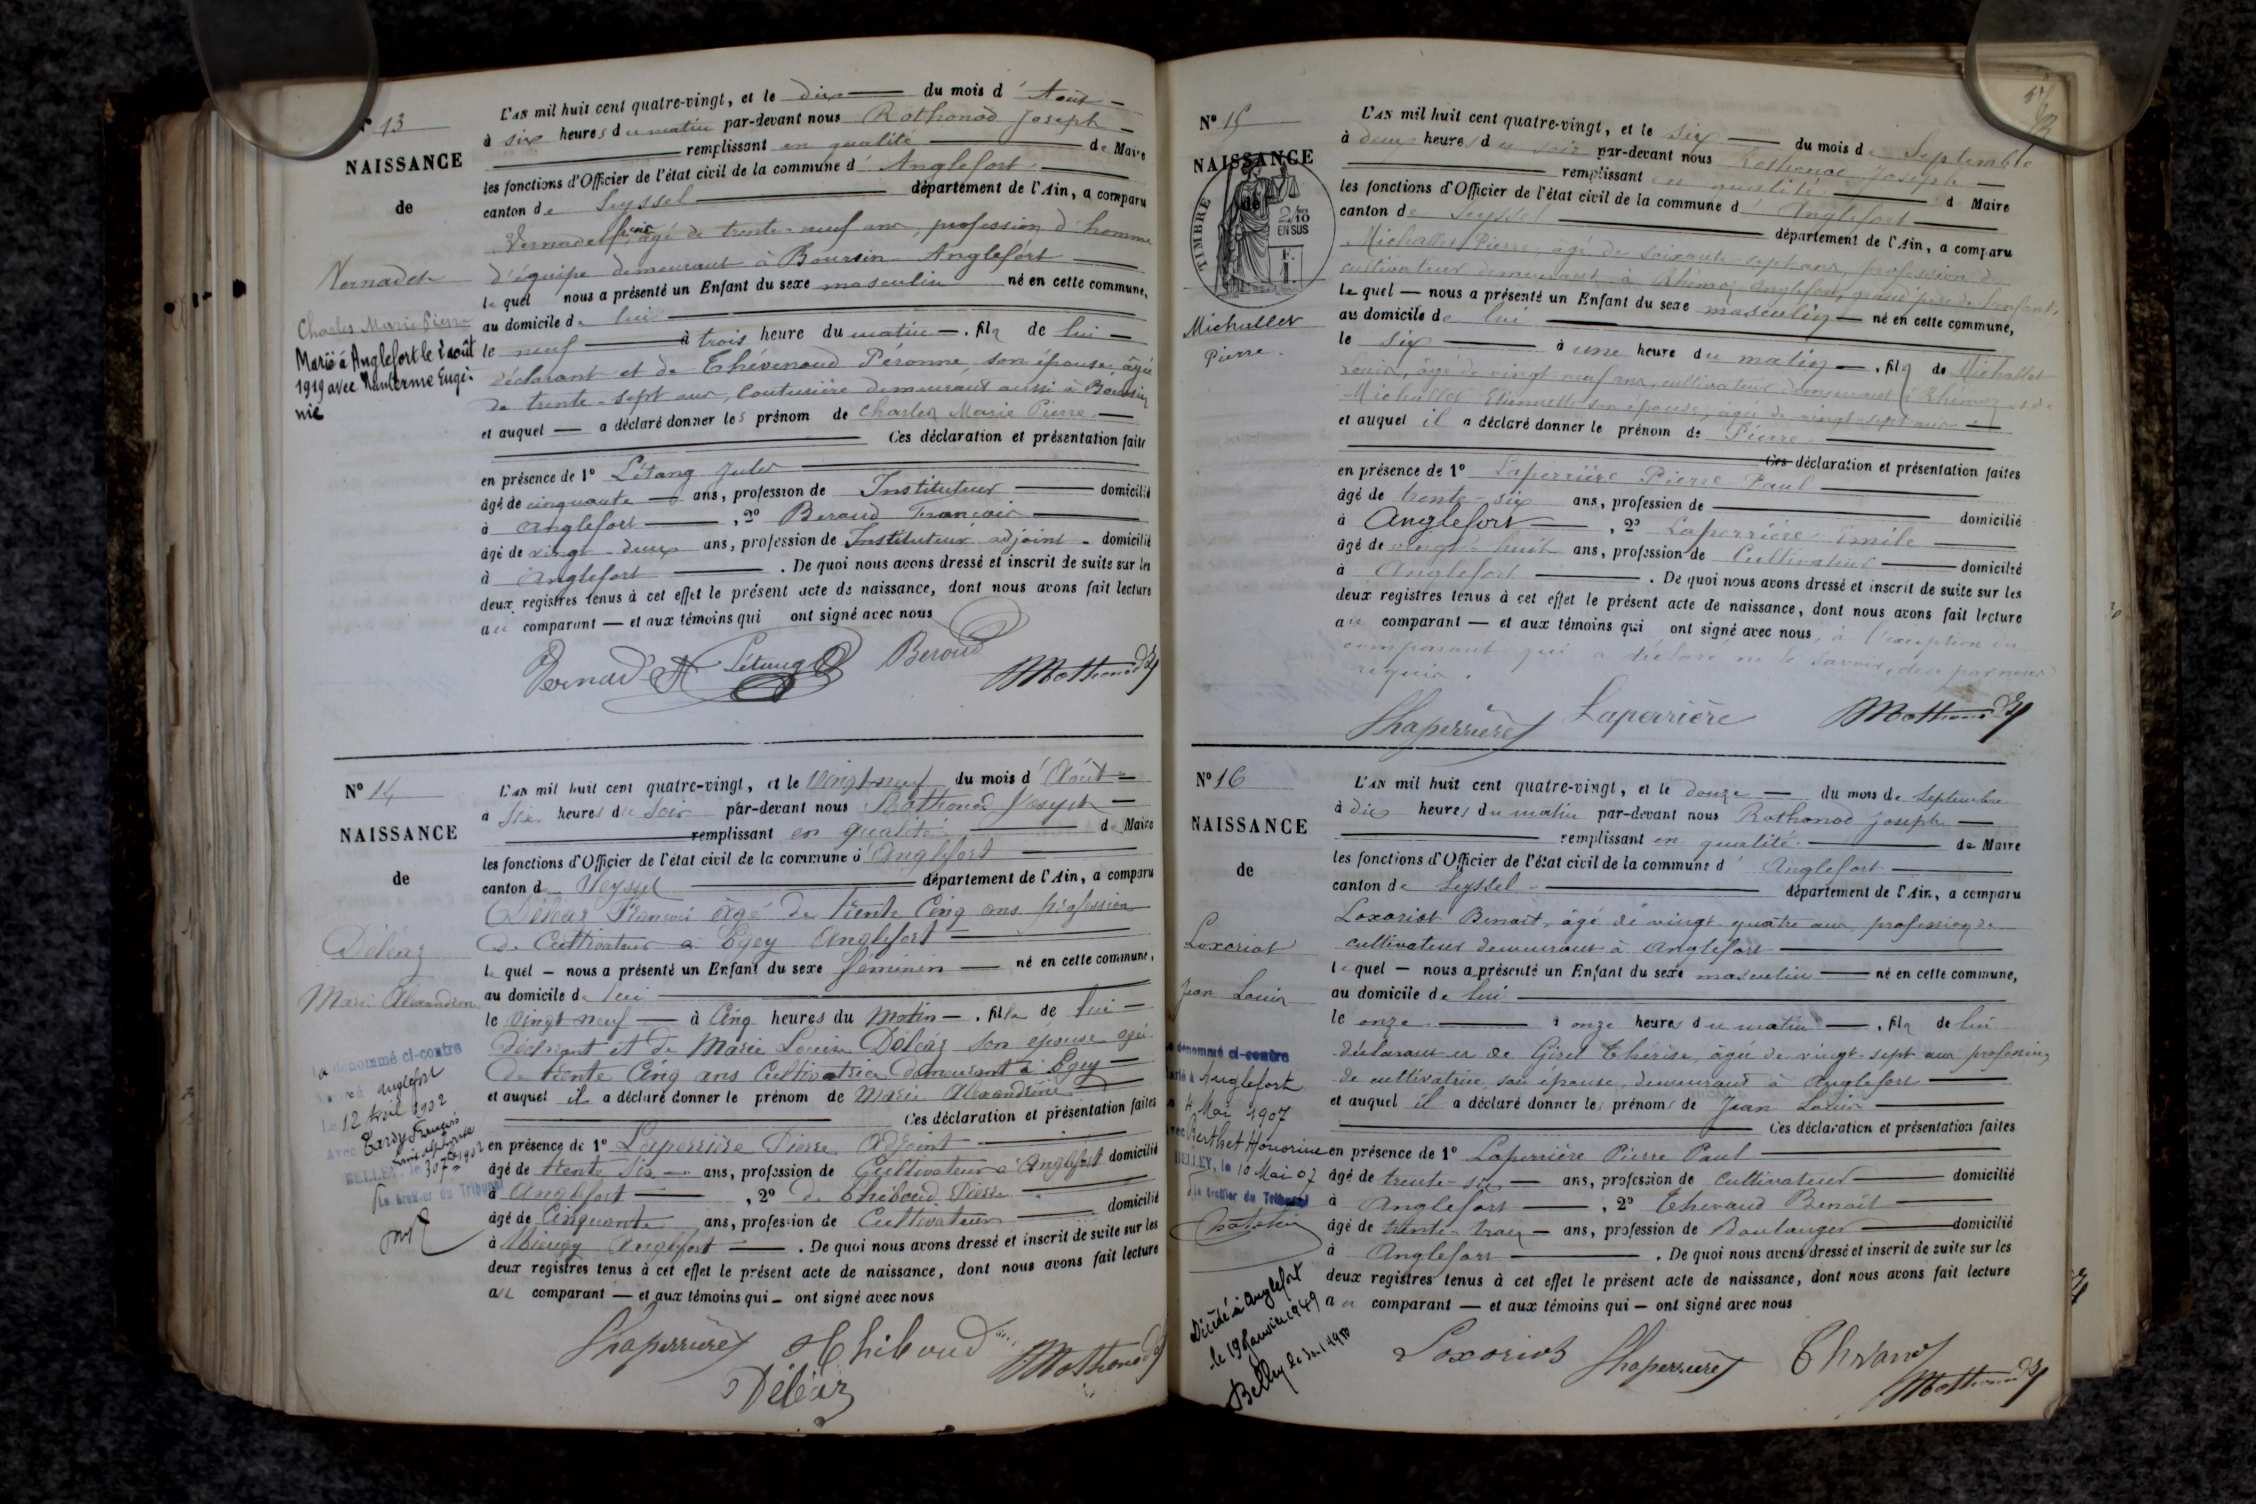 N° 13
NAISSANCE
de
Vernadet
Charles Marie Pierre
Marié à Anglefort le 2 août
1919 avec Eugé-
nie
L'AN mil huit cent quatre-vingt, et le dix du mois d' Août
à six heures du matin par-devant nous Rothonod Joseph
remplissant en qualité de Maire
les fonctions d'Officier de l'état civil de la commune d' Anglefort
canton de Seyssel département de l'Ain, a comparu
Vernadet âgé de trente-neuf ans, profession d'homme
d'équipe demeurant à Boursin Anglefort
le quel nous a présenté un Enfant du sexe masculin né en cette commune,
au domicile de lui
le neuf à trois heure du matin, fils de lui
déclarant et de Thévenoud Péronne, son épouse, âgée
de trente-sept ans, couturière demeurant aussi à Boursin
et auquel a déclaré donner les prénom de Charles Marie Pierre
Ces déclaration et présentation faite
en présence de 1° Létang Jules
âgé de cinquante ans, profession de Instituteur domicilié
à Anglefort, 2° Beroud François
âgé de vingt-deux ans, profession de Instituteur adjoint domicilié
à Anglefort. De quoi nous avons dressé et inscrit de suite sur les
deux registres tenus à cet effet le présent acte de naissance, dont nous avons fait lecture
au comparant — et aux témoins qui ont signé avec nous
Vernadet Létang Beroud Rothonod
N° 14
NAISSANCE
de
Déléaz
Marie Alexandrine
la dénommé ci-contre
Anglefort
Le 12 Avril 1902
Avec Tardy François
BELLEY, le 1902
Le Greffier du Tribunal
L'AN mil huit cent quatre-vingt, et le vingt-neuf du mois d' Août
à six heures du soir par-devant nous Rothonod Joseph
remplissant en qualité de Maire
les fonctions d'Officier de l'état civil de la commune d' Anglefort
canton de Seyssel département de l'Ain, a comparu
Déléaz François âgé de trente cinq ans profession
de Cultivateur à Egey Anglefort
le quel — nous a présenté un Enfant du sexe féminin né en cette commune,
au domicile de lui
le vingt neuf à cinq heures du matin, fille de lui
déclarant et de Marie Louise Déléaz son épouse agée
de trente cinq ans Cultivatrice demeurant à Egey
et auquel il a déclaré donner le prénom de Marie Alexandrine
Ces déclaration et présentation faites
en présence de 1° Laperrière Pierre Adjoint
âgé de trente six ans, profession de Cultivateur à Anglefort domicilié
à Anglefort, 2° de Thiboud Pierre
âgé de Cinquante ans, profession de Cultivateur domicilié
à Anglefort. De quoi nous avons dressé et inscrit de suite sur les
deux registres tenus à cet effet le présent acte de naissance, dont nous avons fait lecture
au comparant — et aux témoins qui — ont signé avec nous
Laperrière Thiboud Rothonod
Déléaz
N° 15
NAISSANCE
de
TIMBRE
2/10
EN SUS
Michallet
Pierre
L'AN mil huit cent quatre-vingt, et le six du mois de Septembre
à deux heures du soir par-devant nous Rothonod Joseph
remplissant en qualité d Maire
les fonctions d'Officier de l'état civil de la commune d' Anglefort
canton de Seyssel département de l'Ain, a comparu
Michallet Pierre, âgé de soixante-sept ans, profession de
cultivateur demeurant à Rhémoz Anglefort, grand père de l'enfant,
Le quel — nous a présenté un Enfant du sexe masculin né en cette commune,
au domicile de lui
le six à une heure du matin, fils de Michallet
Louis, âgé de vingt-neuf ans, cultivateur demeurant à Rhémoz et de
Michallet Etiennette son épouse, âgée de vingt-sept ans
et auquel il a déclaré donner le prénom de Pierre
Ces déclaration et présentation faites
en présence de 1° Laperrière Pierre Paul
âgé de trente-six ans, profession de domicilié
à Anglefort, 2° Laperrière Emile
âgé de vingt-huit ans, profession de Cultivateur domicilié
à Anglefort. De quoi nous avons dressé et inscrit de suite sur les
deux registres tenus à cet effet le présent acte de naissance, dont nous avons fait lecture
au comparant — et aux témoins qui ont signé avec nous, à l'exception du
comparant qui a déclaré ne le savoir, de ce par nous
requis.
Laperrière Laperrière Rothonod
N° 16
NAISSANCE
de
Loxoriat
Jean Louis
dénommé ci-contre
à Anglefort
4 Mai 1907
avec Berthet Honorine
BELLEY, le 10 Mai 07
Le Greffier du Tribunal
Décédé à Anglefort
le 19 Janvier 1949
Belley
L'AN mil huit cent quatre-vingt, et le douze du mois de Septembre
à dix heures du matin par-devant nous Rothonod Joseph
remplissant en qualité de Maire
les fonctions d'Officier de l'état civil de la commune d' Anglefort
canton de Seyssel département de l'Ain, a comparu
Loxoriat Benoit, âgé de vingt quatre ans, profession de
cultivateur demeurant à Anglefort
le quel — nous a présenté un Enfant du sexe masculin né en cette commune,
au domicile de lui
le onze à onze heures du matin, fils de lui
déclarant et de Girel Thérèse, âgée de vingt-sept ans profession
de cultivatrice, son épouse, demeurant à Anglefort
et auquel il a déclaré donner les prénoms de Jean Louis
Ces déclaration et présentation faites
en présence de 1° Laperrière Pierre Paul
âgé de trente-six ans, profession de Cultivateur domicilié
à Anglefort, 2° Thevand Benoit
âgé de trente-trois ans, profession de Boulanger domicilié
à Anglefort. De quoi nous avons dressé et inscrit de suite sur les
deux registres tenus à cet effet le présent acte de naissance, dont nous avons fait lecture
au comparant — et aux témoins qui — ont signé avec nous
Loxoriat Laperrière Thevand
Rothonod